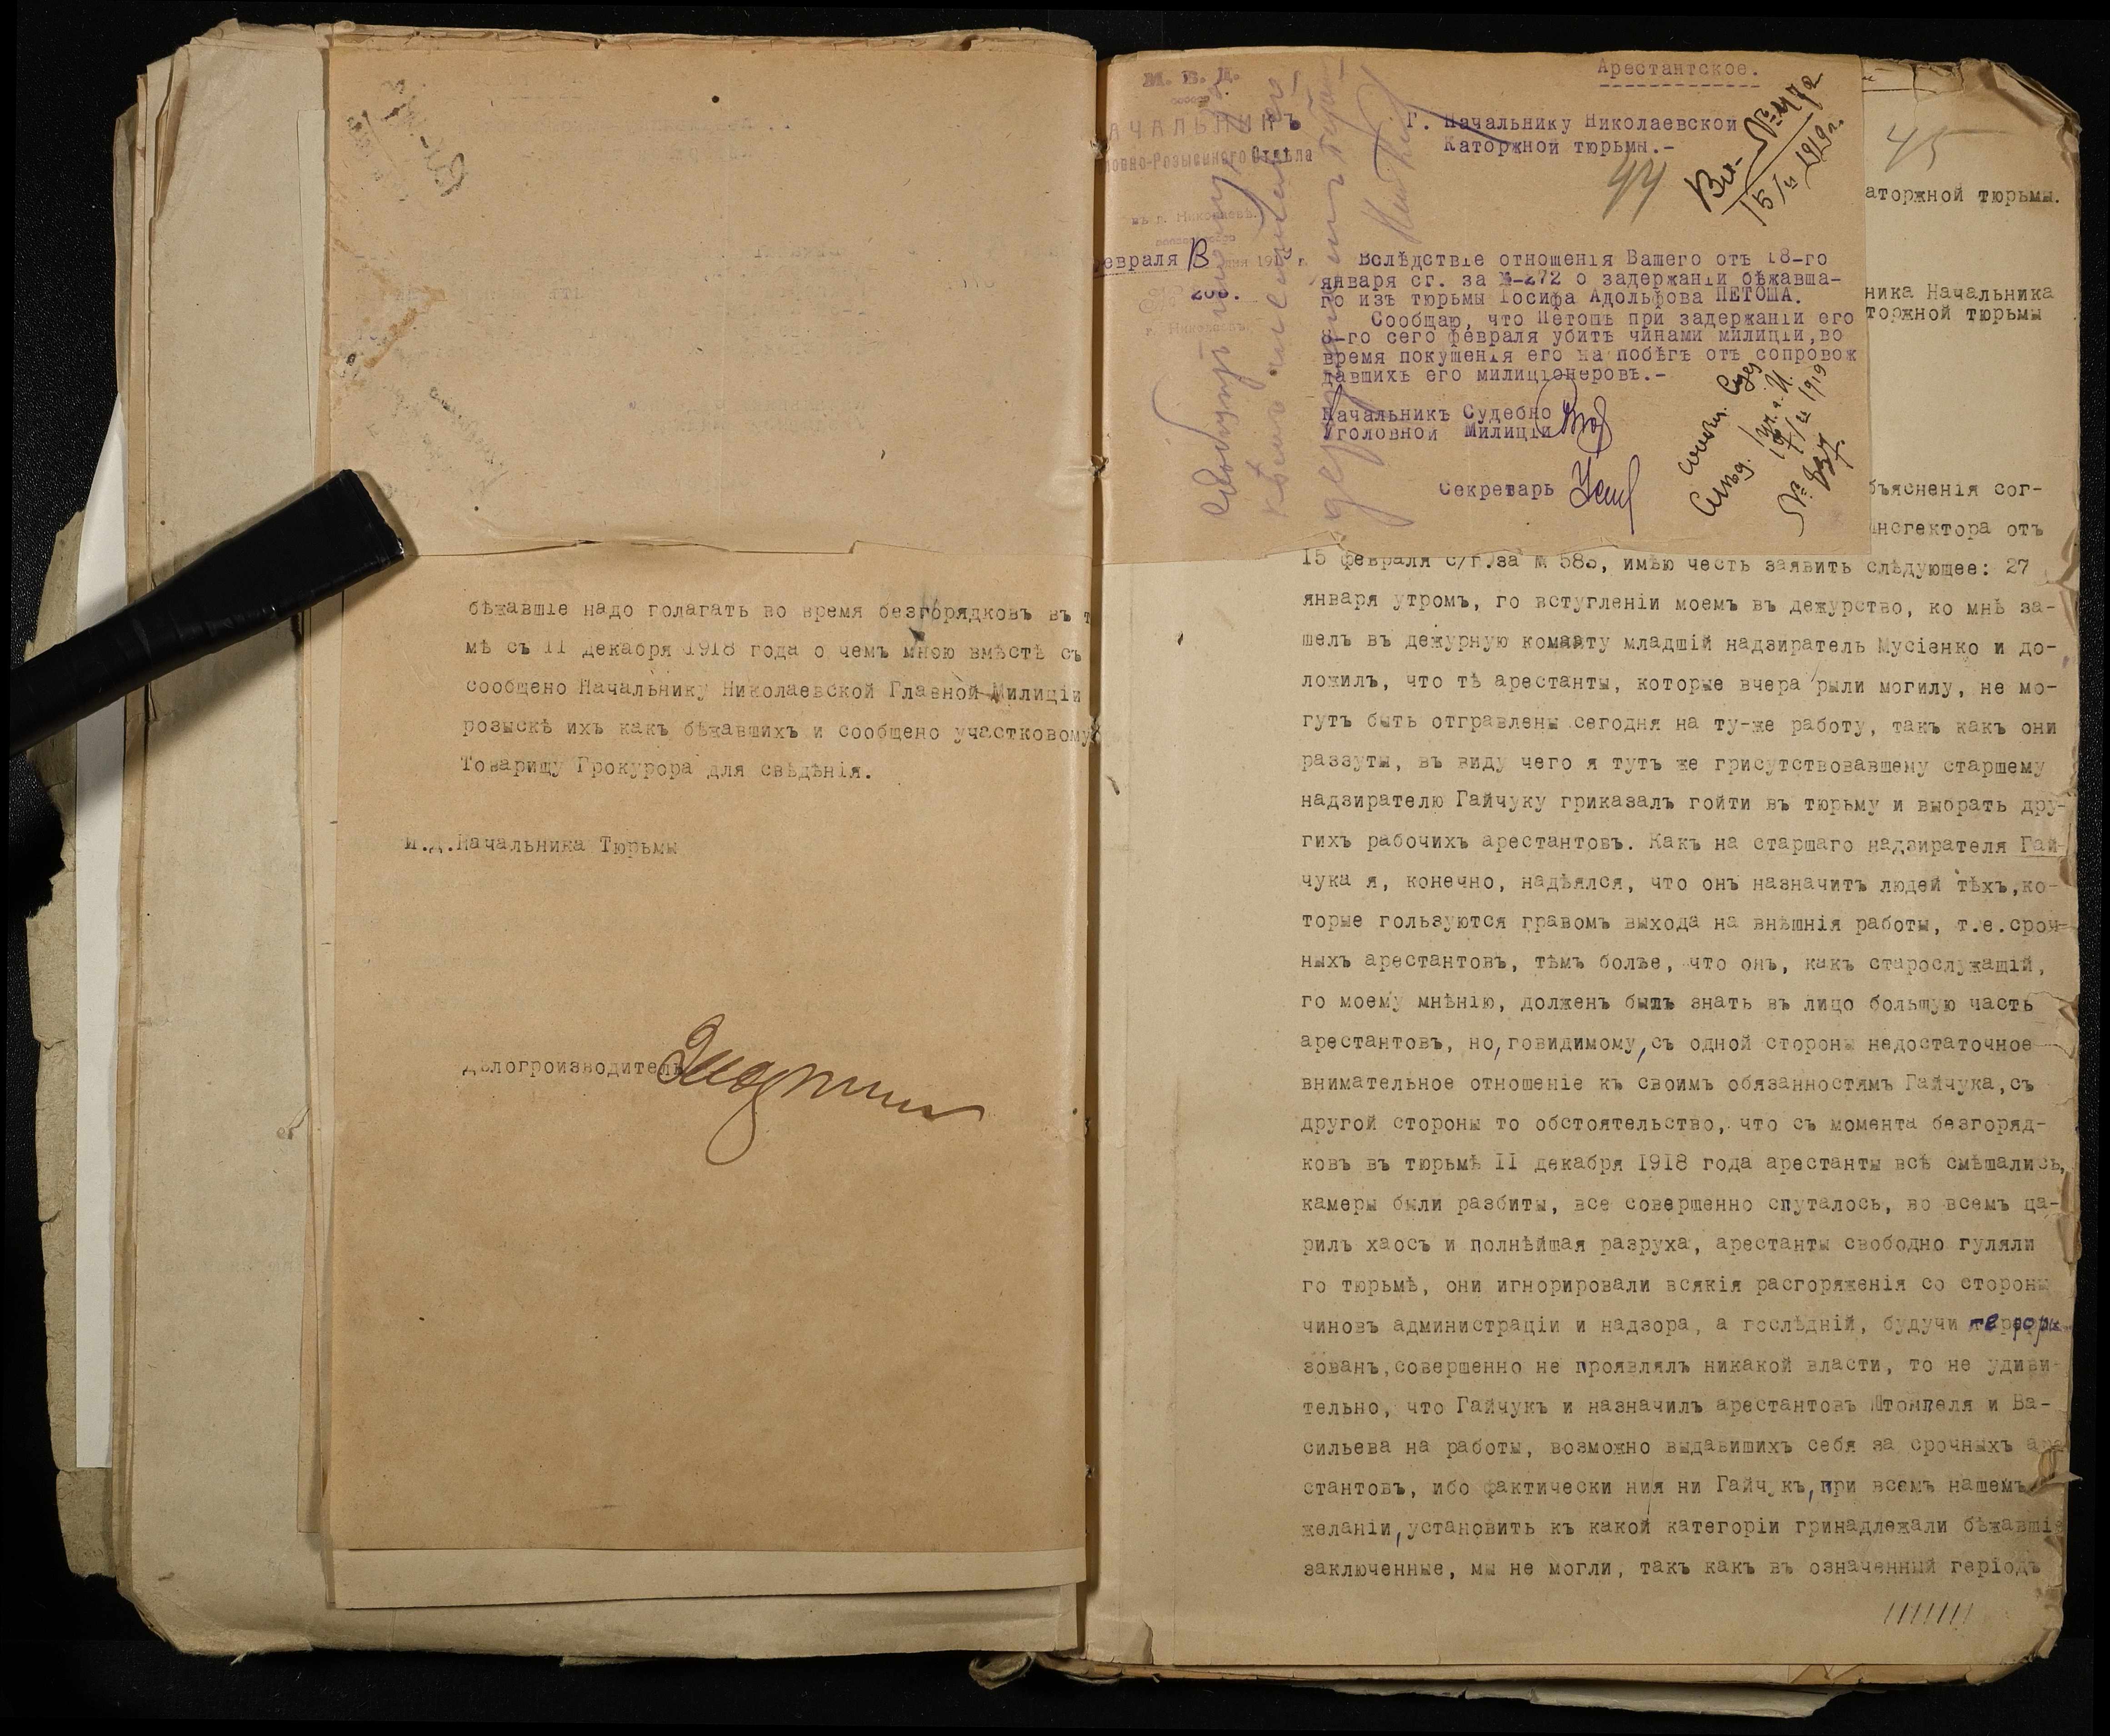 бѣжавшіе надо голагать во время безгорядковъ въ т
мѣ съ 11 декабря 1918 года о чемъ мною вмѣстѣ съ
сообщено Начальнику Николаевской Главной Милиціи
розыскѣ ихъ какъ бѣжавшихъ и сообщено участковому
Товарищу Грокурора для свѣдѣнія.
И.д.Начальника Тюрьмы
Дѣлогроизводитель
М. В. Д.
АЧАЛЬНИКЪ
ловно-Розыскного Отдѣла
въ г. Николаевѣ.
евраля 13 дня 191 г.
№ 206.
г. Николаевъ
Арестантское.
Г. Начальнику Николаевской
Каторжной тюрьмы.-
44
Вх. № 472
15/II 1919 г.
Вслѣдствіе отношенія Вашего отъ 18-го
января сг. за №-272 о задержаніи бѣжавша-
го изъ тюрьмы Іосифа Адольфова ПЕТОША.
Сообщаю, что Петошъ при задержаніи его
8-го сего февраля убитъ чинами милиціи,во
время покушенія его на побѣгъ отъ сопровож
давшихъ его милиціонеровъ.-
Начальникъ Судебно
Уголовной Милиціи
Секретарь
Слѣд.
17/II 1919
№ 837.
45
аторжной тюрьмы.
ника Начальника
торжной тюрьмы
бъясненія сог-
Инсгектора отъ
15 февраля с/г.за № 585, имѣю честь заявить слѣдующее: 27
января утромъ, го встугленіи моемъ въ дежурство, ко мнѣ за-
шелъ въ дежурную комнату младшій надзиратель Мусіенко и до-
ложилъ, что тѣ арестанты, которые вчера рыли могилу, не мо-
гутъ быть отгравлены сегодня на ту-же работу, такъ какъ они
раззуты, въ виду чего я тутъ же грисутствовавшему старшему
надзирателю Гайчуку гриказалъ гойти въ тюрьму и выбрать дру-
гихъ рабочихъ арестантовъ. Какъ на старшаго надзирателя Гай-
чука я, конечно, надѣялся, что онъ назначитъ людей тѣхъ,ко-
торые гользуются гравомъ выхода на внѣшнія работы, т.е.сроч-
ныхъ арестантовъ, тѣмъ болѣе, что онъ, какъ старослужащій,
го моему мнѣнію, долженъ былъ знать въ лицо большую часть
арестантовъ, но, говидимому, съ одной стороны недостаточное
внимательное отношеніе къ своимъ обязанностямъ Гайчука,съ
другой стороны то обстоятельство, что съ момента безгоряд-
ковъ въ тюрьмѣ II декабря 1918 года арестанты всѣ смѣшались,
камеры были разбиты, все совершенно спуталось, во всемъ ца-
рилъ хаосъ и полнѣйшая разруха, арестанты свободно гуляли
го тюрьмѣ, они игнорировали всякія расгоряженія со стороны
чиновъ администраціи и надзора, а гослѣдній, будучи террори-
зованъ,совершенно не проявлялъ никакой власти, то не удиви-
тельно, что Гайчукъ и назначилъ арестантовъ Штомпеля и Ва-
сильева на работы, возможно выдавишихъ себя за срочныхъ аре
стантовъ, ибо фактически ния ни Гайчукъ, при всемъ нашемъ
желаніи, установить къ какой категоріи гринадлежали бѣжавшіе
заключенные, мы не могли, такъ какъ въ означенный геріодъ
///////